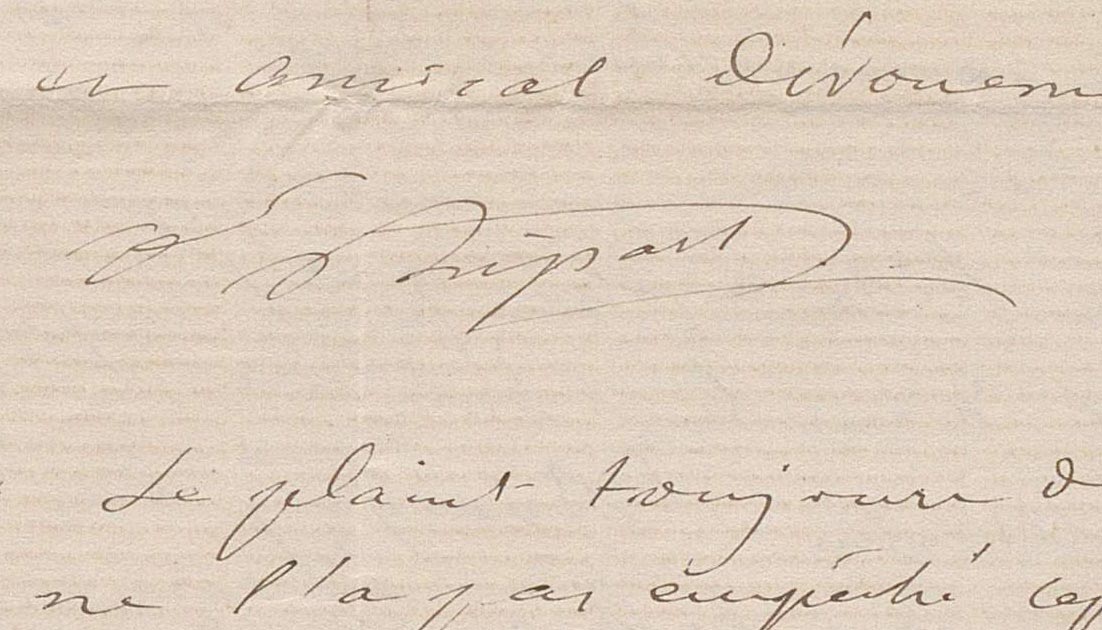 et amical dévouem
se plaint toujours d
ne l'a pas empêché cep